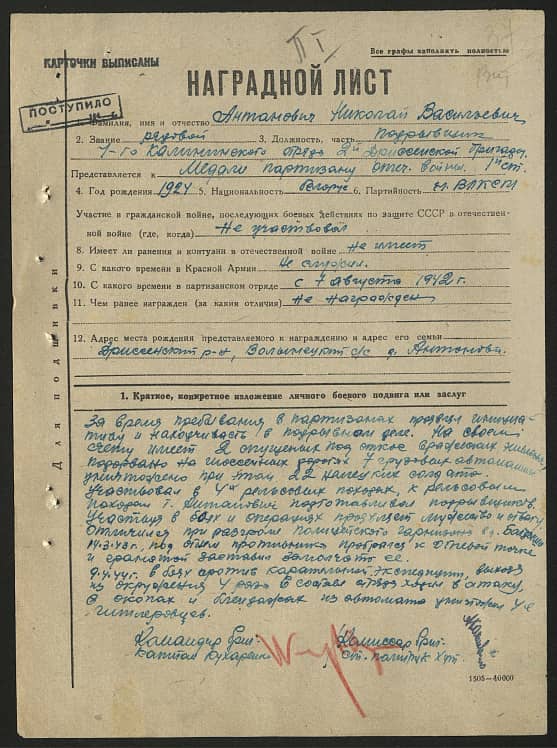 Все графы заполнять полностью
КАРТОЧКИ ВЫПИСАНЫ
НАГРАДНОЙ ЛИСТ
ПОСТУПИЛО
1. Фамилия, имя и отчество Антанович Николай Васильевич
2. Звание рядовой 3. Должность, часть подрывник
1-го Калининского отряда 2й Дриссенской бригады
Представляется к Медали партизану отеч. войны 1й ст.
4. Год рождения 1924 5. Национальность белорус 6. Партийность чл. ВЛКСМ
Участие в гражданской войне, последующих боевых действиях по защите СССР и отечествен-
ной войне (где, когда) Не участвовал
8. Имеет ли ранения и контузии в отечественной войне Не имеет
9. С какого времени в Красной Армии Не служил.
10. С какого времени в партизанском отряде с 7 августа 1942 г.
11. Чем ранее награжден (за какие отличия) Не награжден
12. Адрес места рождения представляемого к награждению и адрес его семьи
Дриссенский р-н, Волынецкий с/с д. Антоново.
Для подшивки
1. Краткое, конкретное изложение личного боевого подвига или заслуг
За время пребывания в партизанах проявил инициа-
тиву и находчивость в подрывном деле. На своем
счету имеет 2 спущенных под откос вражеских эшелона
Подорвано на шоссейных дорогах 7 грузовых автомашин
уничтожено при этом 22 немецких солдата
Участвовал в 4х рельсовых походах, к рельсовым
походам т. Антанович подготавливал подрывщиков.
Участвуя в боях и операциях проявляет мужество и отвагу
Отличился при разгроме полицейского гарнизона в д.
14.3.43г. под огнем противника пробрался к огневой точке
и гранатой заставил замолчать ее
9.4.44г. в бою против карательной экспедиции, выходя
из окружения 4 раза в составе отряда ходил в атаку,
в окопах и блиндажах из автомата уничтожил 4-х
гитлеровцев.
Командир бриг. Комиссар бриг.
Капитан Кухаренко ст. политрук
1505-40000